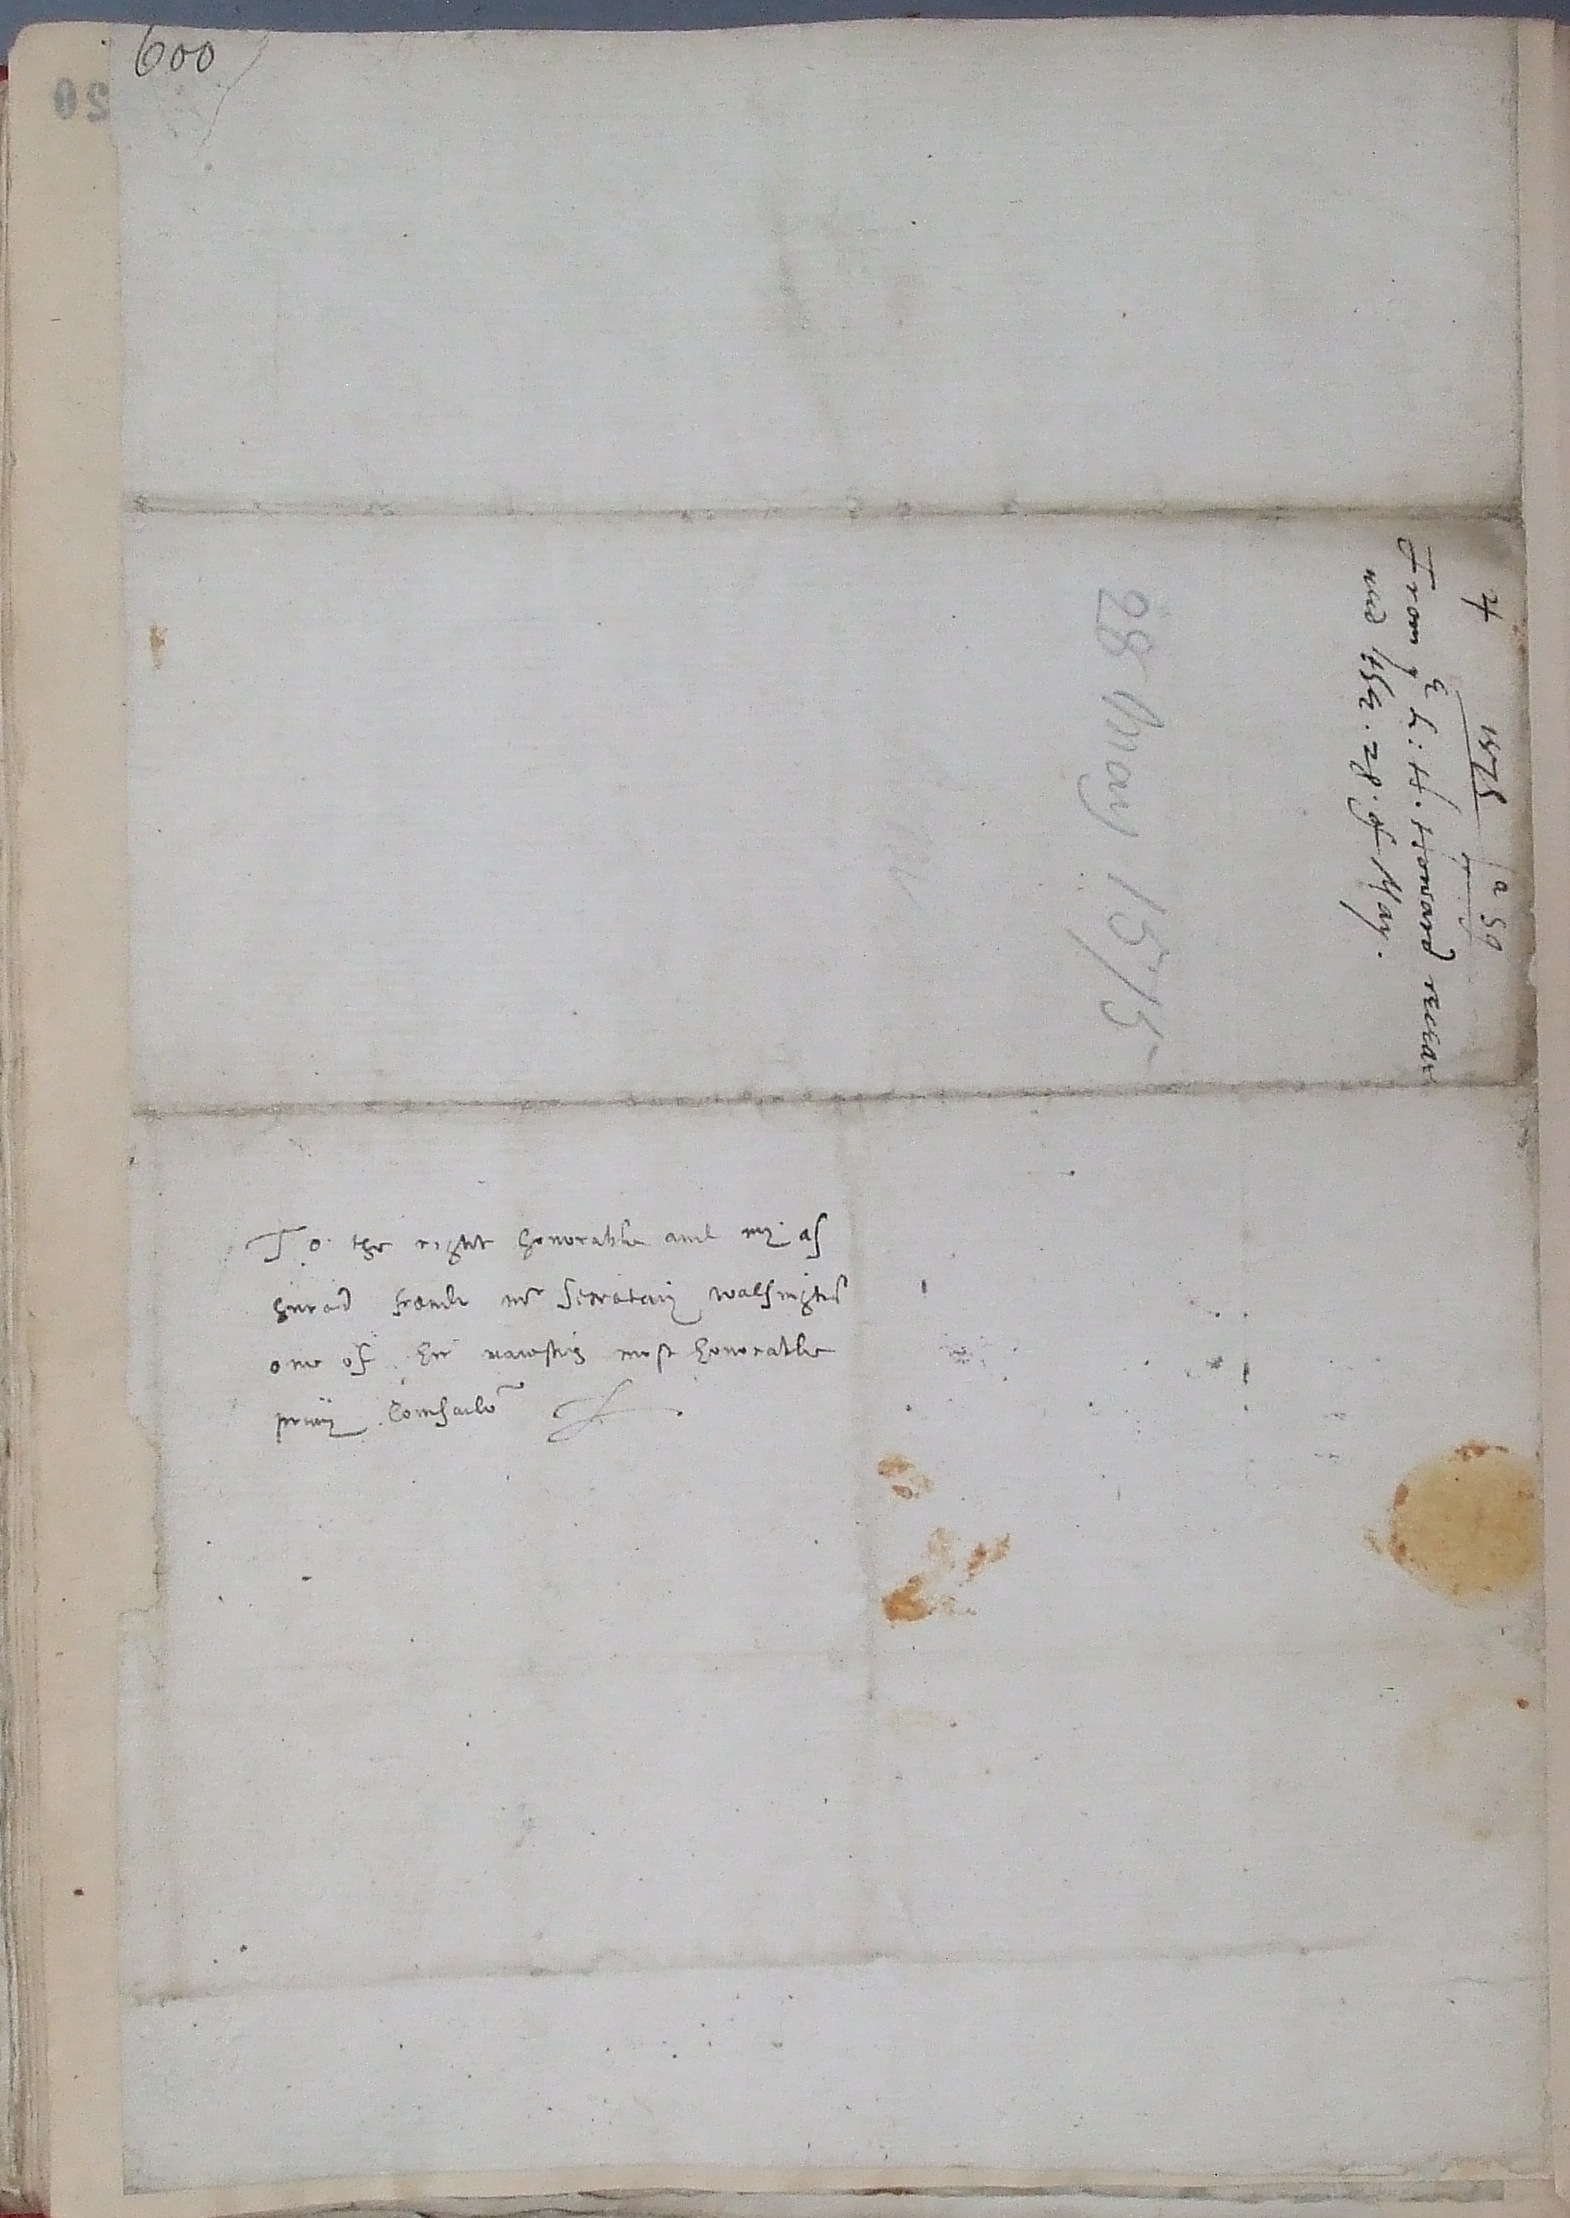 600
4 1575
From yͤ L: H. Howard receav
ued the. 28. of May.
28 May 1575
To the right honorable and my as
surad frende mr Secratary walsingh
one of her maiesties most honorable
privy Counsailo